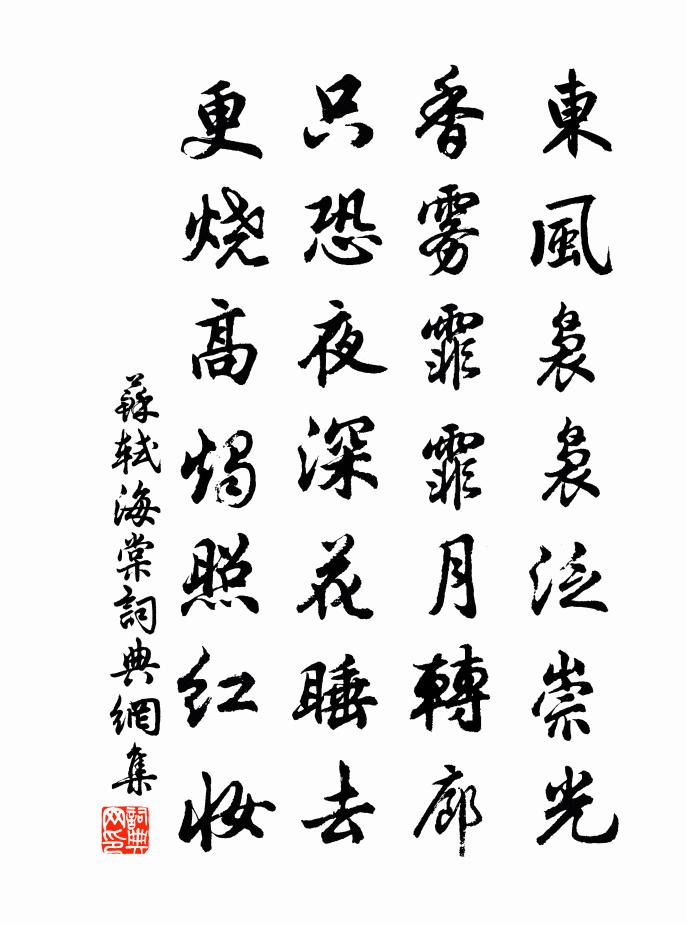 東風裊裊泛崇光
香雾霏霏月轉廊
只恐夜深花睡去
更烧高燭照红妆
蘇轼海棠詞典網集
詞典网印